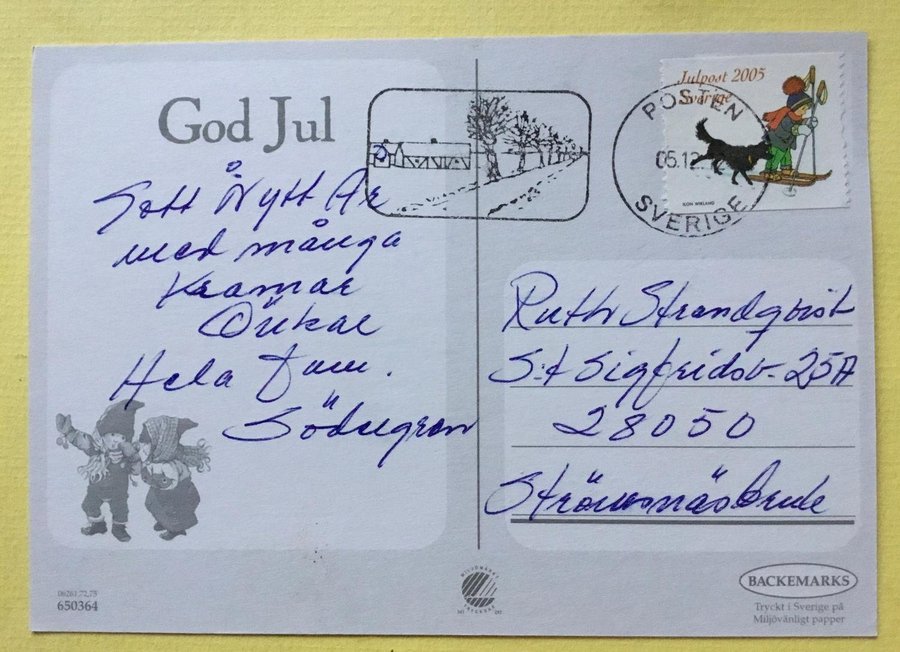 God Jul
Gott Nytt År
med många
Kramar
Önskar
Hela Fam.
Södergran
06261 72,75
650364
Julpost 2005
Sverige
POSTEN
SVERIGE
ILON WIKLAND
Ruth Strandqvist
S:t Sigfridsv. 25A
28050
Strömsnäsbruk
MILJÖMÄRKT
TRYCKSAK
341
BACKEMARKS
Tryckt i Sverige på
Miljövänligt papper